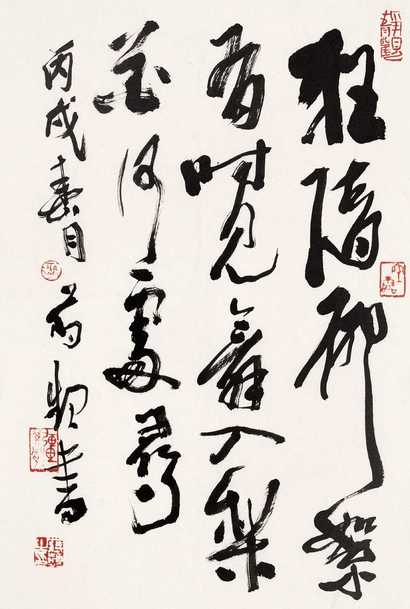 狂隨柳絮
有时見舞入梨
花何處尋
丙戌春月
書